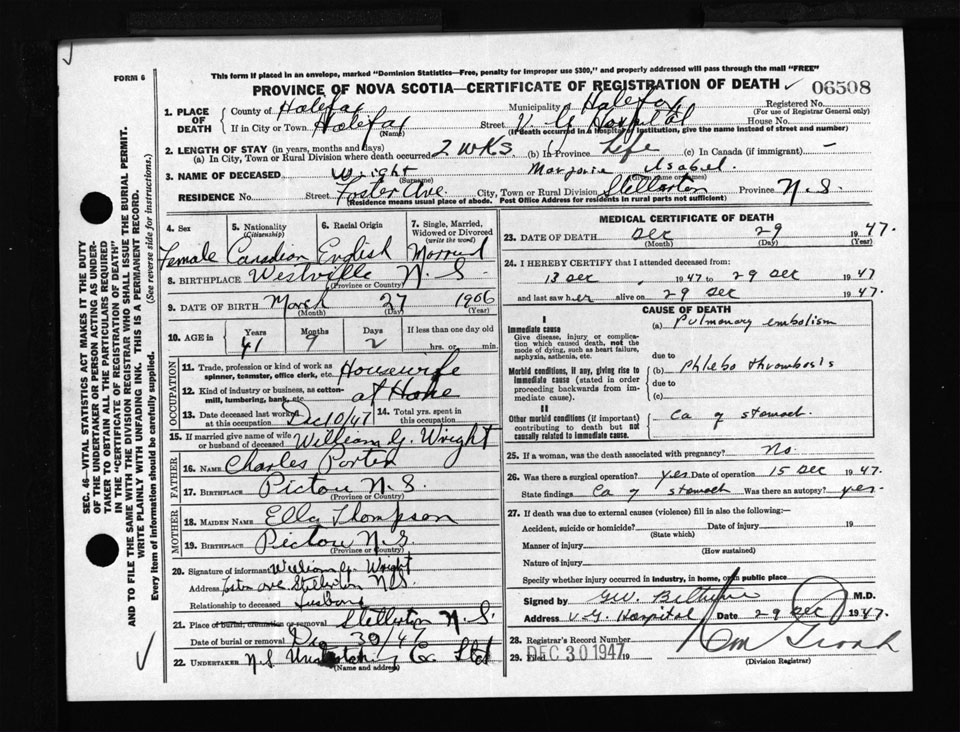 FORM 6
This form if placed in an envelope, marked "Dominion Statistics—Free, penalty for improper use $300," and properly addressed will pass through the mail "FREE"
PROVINCE OF NOVA SCOTIA—CERTIFICATE OF REGISTRATION OF DEATH
06508
SEC. 46—VITAL STATISTICS ACT MAKES IT THE DUTY
OF THE UNDERTAKER OR PERSON ACTING AS UNDER-
TAKER TO OBTAIN ALL THE PARTICULARS REQUIRED
IN THE "CERTIFICATE OF REGISTRATION OF DEATH"
AND TO FILE THE SAME WITH THE DIVISION REGISTRAR WHO SHALL ISSUE THE BURIAL PERMIT.
WRITE PLAINLY WITH UNFADING INK. THIS IS A PERMANENT RECORD.
Every item of information should be carefully supplied. (See reverse side for instructions.)
1. PLACE OF DEATH
County of Halifax Municipality Halifax Registered No.
(For use of Registrar General only)
If in City or Town Halifax Street V. G. Hospital House No.
(Name) (If death occurred in a hospital or institution, give the name instead of street and number)
2. LENGTH OF STAY (in years, months and days)
(a) In City, Town or Rural Division where death occurred 2 wks. (b) In Province Life (c) In Canada (if immigrant) —
3. NAME OF DECEASED Wright Marjorie Isabel
(Surname) (Given names)
RESIDENCE No. Street Foster Ave. City, Town or Rural Division Stellarton Province N.S.
(Residence means usual place of abode. Post Office Address for residents in rural parts not sufficient)
4. Sex 5. Nationality (Citizenship) 6. Racial Origin 7. Single, Married, Widowed or Divorced (write the word)
Female Canadian English Married
8. BIRTHPLACE Westville N.S.
(Province or Country)
9. DATE OF BIRTH March 27 1906
(Month) (Day) (Year)
10. AGE in Years Months Days If less than one day old
41 9 2 hrs. or min.
OCCUPATION
11. Trade, profession or kind of work as spinner, teamster, office clerk, etc. Housewife
12. Kind of industry or business, as cotton-mill, lumbering, bank, etc. at Home
13. Date deceased last worked at this occupation Dec 10/47 14. Total yrs. spent in this occupation
15. If married give name of wife or husband of deceased William G. Wright
FATHER
16. NAME Charles Porter
17. BIRTHPLACE Pictou N.S.
(Province or Country)
MOTHER
18. MAIDEN NAME Ella Thompson
19. BIRTHPLACE Pictou N.S.
(Province or Country)
20. Signature of informant William G. Wright
Address Foster Ave Stellarton N.S.
Relationship to deceased Husband
21. Place of burial, cremation or removal Stellarton N.S.
Date of burial or removal Dec 30/47
22. UNDERTAKER N.S. Undertaking Co. Ltd
(Name and address)
MEDICAL CERTIFICATE OF DEATH
23. DATE OF DEATH Dec 29 1947
(Month) (Day) (Year)
24. I HEREBY CERTIFY that I attended deceased from:
13 Dec, 1947 to 29 Dec 1947
and last saw her alive on 29 Dec 1947.
CAUSE OF DEATH
I
Immediate cause
Give disease, injury or complication which caused death, not the mode of dying, such as heart failure, asphyxia, asthenia, etc.
(a) Pulmonary embolism
due to
Morbid conditions, if any, giving rise to immediate cause (stated in order proceeding backwards from immediate cause).
(b) Phlebo thrombosis
due to
(c)
II
Other morbid conditions (if important) contributing to death but not causally related to immediate cause.
Ca of stomach.
25. If a woman, was the death associated with pregnancy? No.
26. Was there a surgical operation? yes Date of operation 15 Dec 1947.
State findings Ca of stomach Was there an autopsy? yes.
27. If death was due to external causes (violence) fill in also the following:—
Accident, suicide or homicide? Date of injury 19
(State which)
Manner of injury
(How sustained)
Nature of injury
Specify whether injury occurred in industry, in home, or in public place
Signed by M.D.
Address V.G. Hospital Date 29 Dec 1947.
28. Registrar's Record Number
29. Filed DEC 30 1947 19
(Division Registrar)